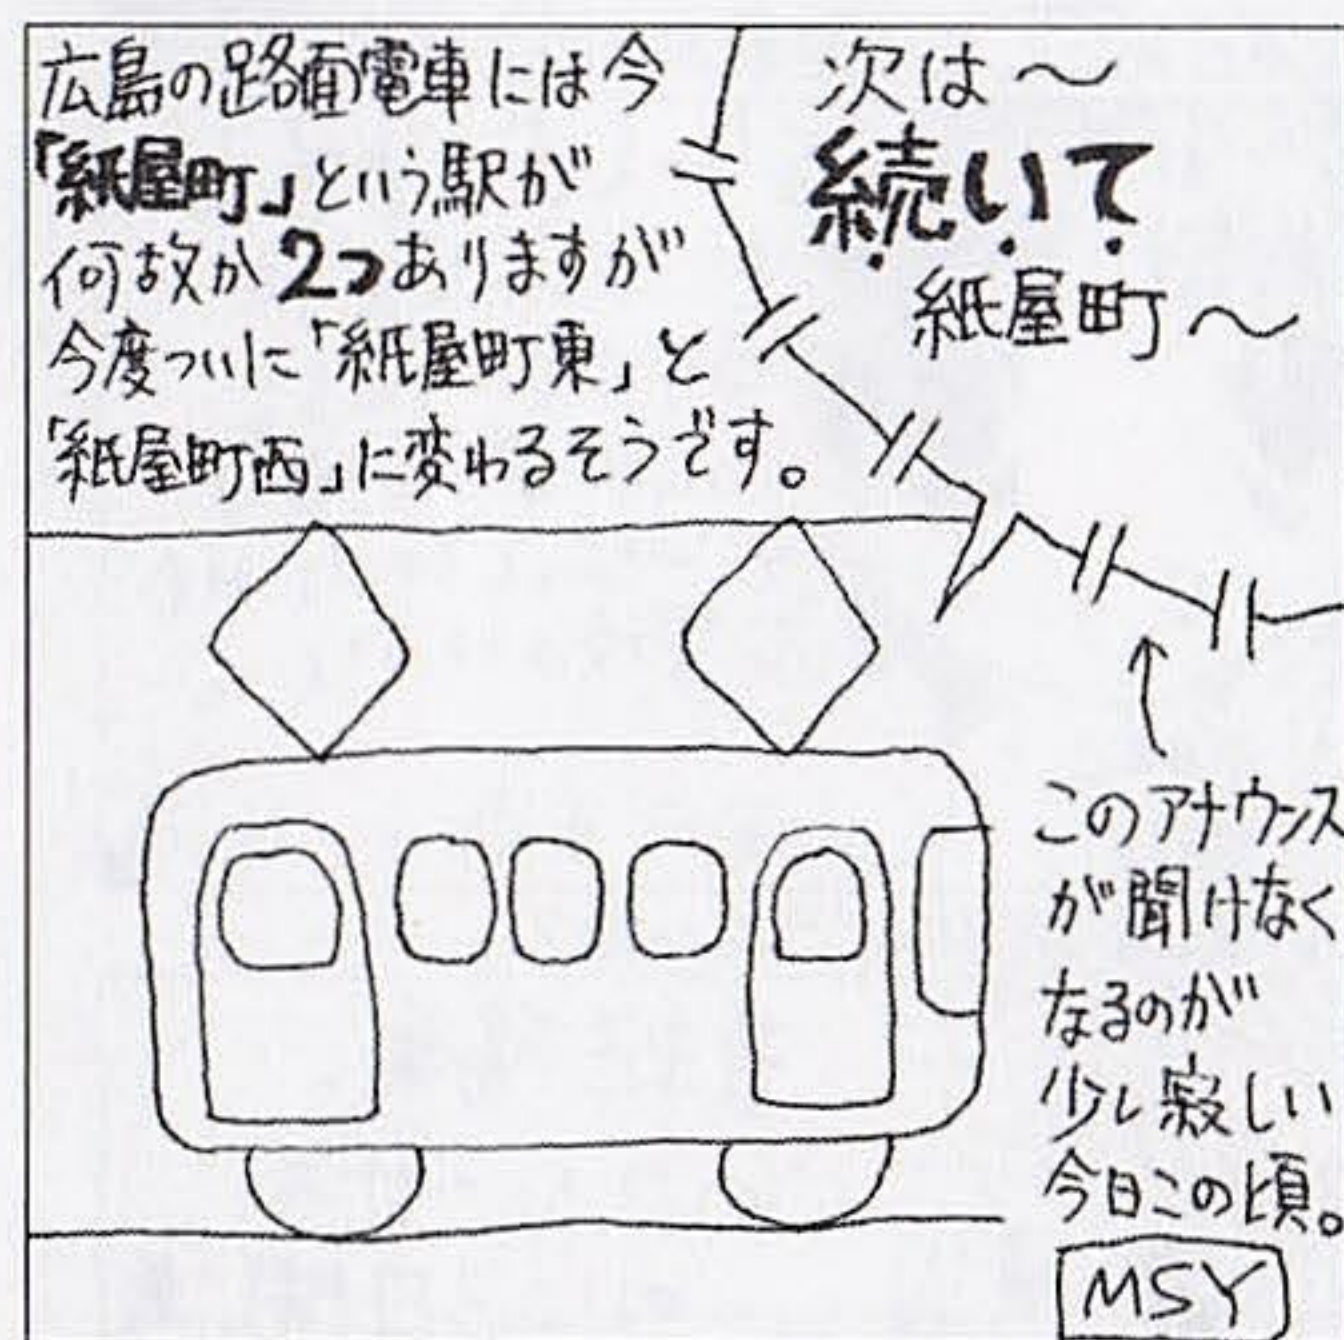 広島の路面電車には今
「紙屋町」という駅が
何故か2つありますが
今度ついに「紙屋町東」と
「紙屋町西」に変わるそうです。
次は～
続いて
紙屋町～
このアナウンス
が聞けなく
なるのが
少し寂しい
今日この頃。
MSY